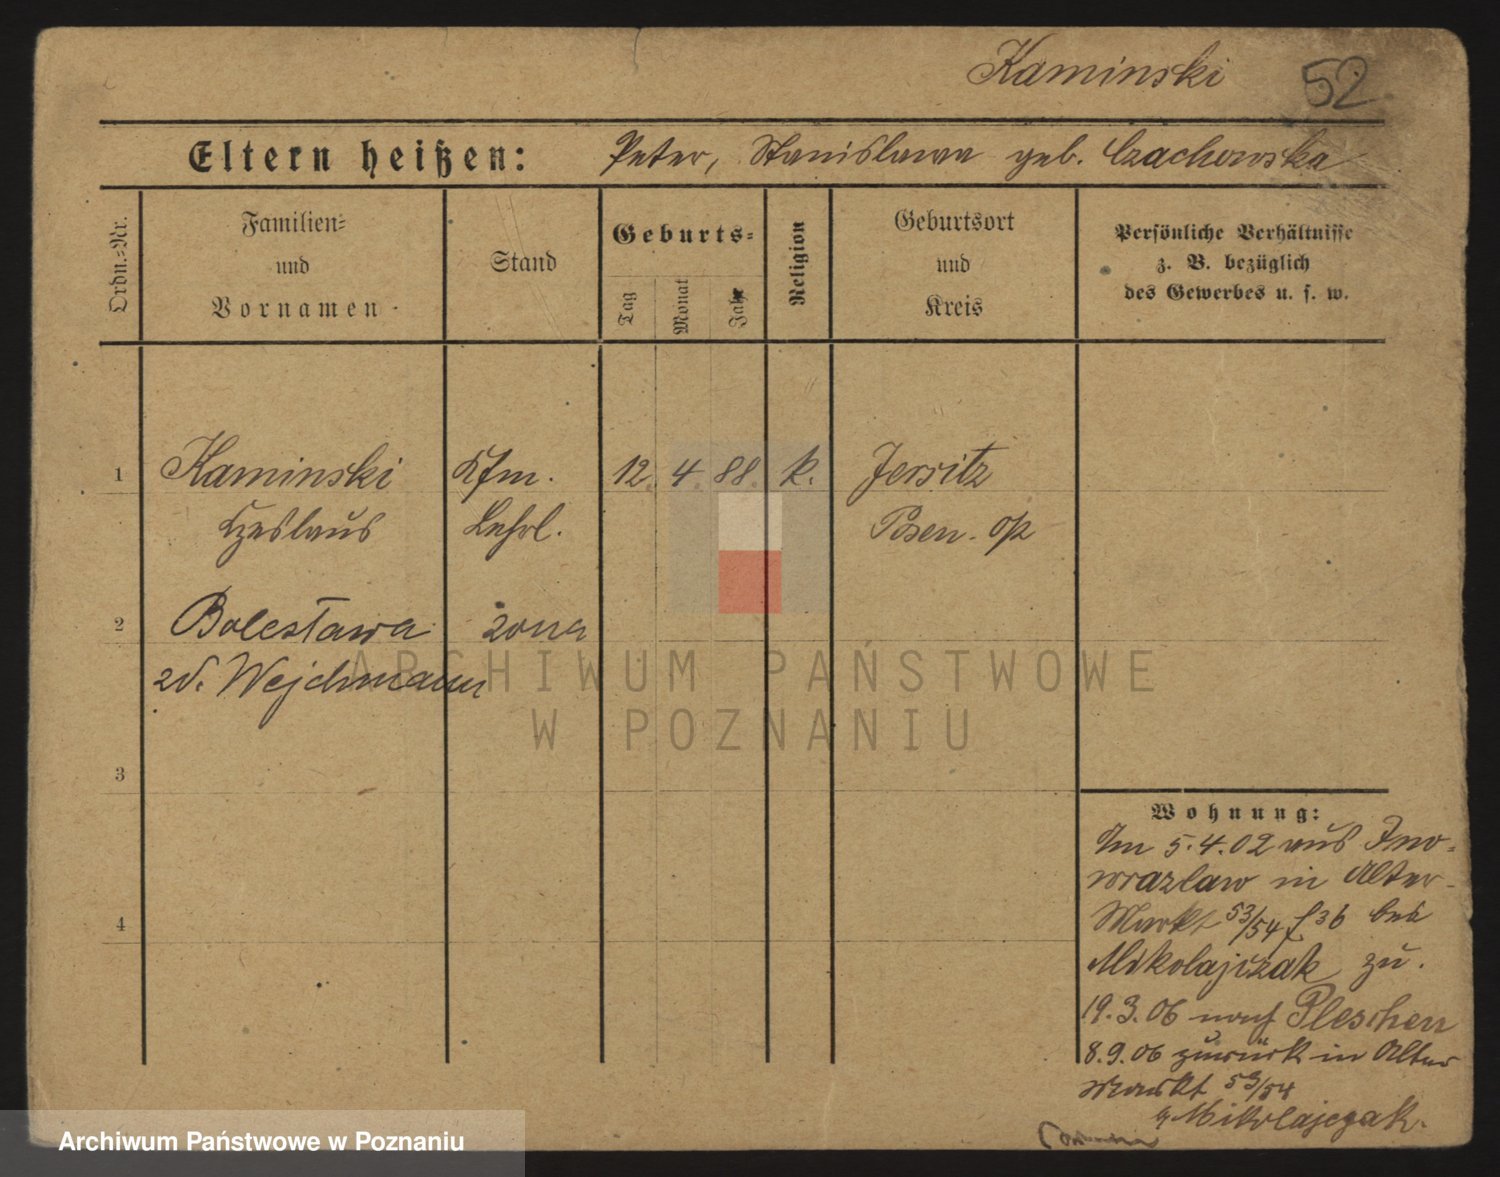 Kaminski 52
Eltern heißen: Peter, Stanislawa geb. Czachowska
Ordn.-Nr.
Familien-
und
Vornamen
Stand
Geburts-
Tag
Monat
Jahr
Religion
Geburtsort
und
Kreis
Persönliche Verhältnisse
z. B. bezüglich
des Gewerbes u. s. w.
1 Kaminski Kfm. 12. 4. 88. k. Jersitz
Czeslaus Lehrl. Posen. op
2 Bolesława żona
zd. Wejchmann
ARCHIWUM PAŃSTWOWE
W POZNANIU
3
4
Wohnung:
Im 5.4.02 aus Ino-
wrazlaw in Alter-
Markt 53/54 f 36 bei
Mikolajczak zu.
19.3.06 nach Pleschen
8.9.06 zurück in Alter
Markt 53/54
Mikolajczak.
Archiwum Państwowe w Poznaniu